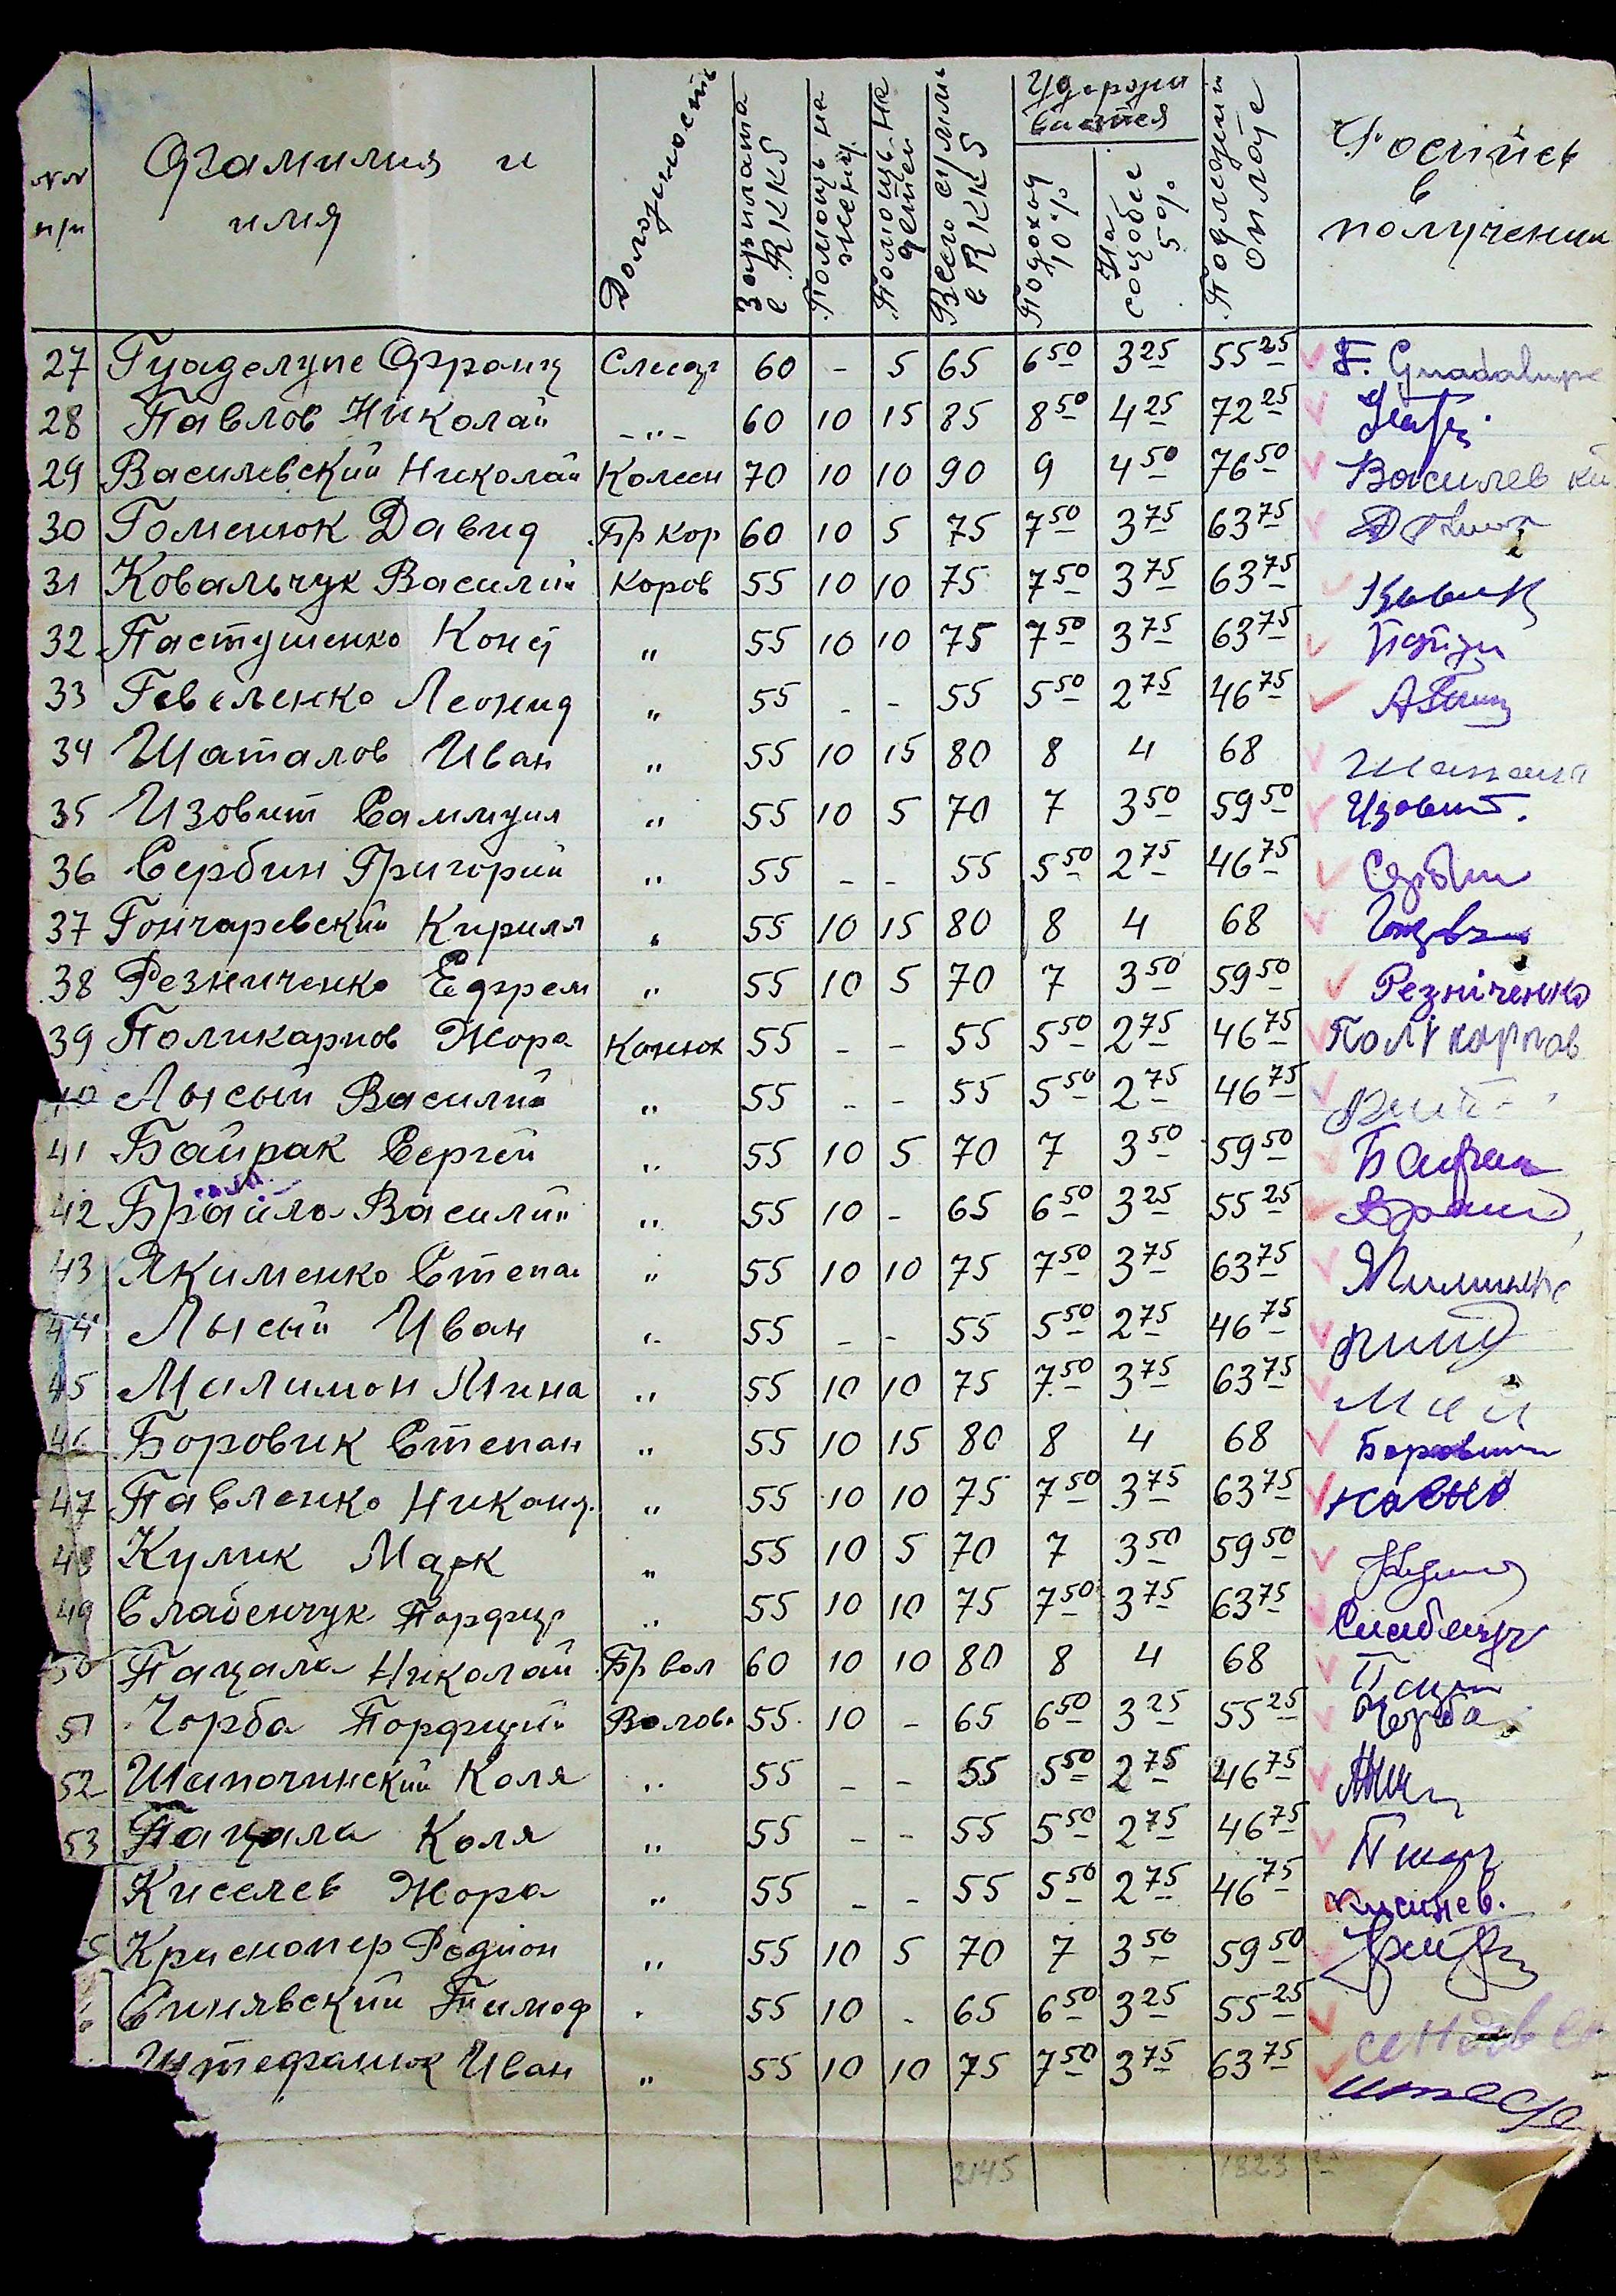 №№ п/п Фамилия и имя Должность Зарплата в RKKS Помощь на жену Помощь на детей Всего сумм в RKKS Удерживается Подоход 10% На соцобес 5% Подлежит оплате Росписка в получении
27 Гуаделупе Франц Слесар 60 - 5 65 6 50 3 25 55 25 F. Guadalupe
28 Павлов Николай -"- 60 10 15 85 8 50 4 25 72 25
29 Василевский Николай Колесн 70 10 10 90 9 4 50 76 50 Василевский
30 Гоменюк Давид Бр кор 60 10 5 75 7 50 3 75 63 75
31 Ковальчук Василий Коров 55 10 10 75 7 50 3 75 63 75
32 Пастушенко Конст " 55 10 10 75 7 50 3 75 63 75
33 Гевеленко Леонид " 55 - - 55 5 50 2 75 46 75
34 Шаталов Иван " 55 10 15 80 8 4 68
35 Изовит Саммуил " 55 10 5 70 7 3 50 59 50 Изовит.
36 Сербин Григорий " 55 - - 55 5 50 2 75 46 75 Сербин
37 Гончаревский Кирилл " 55 10 15 80 8 4 68
38 Резниченко Ефрем " 55 10 5 70 7 3 50 59 50 Резніченко
39 Поликарпов Жора Конюх 55 - - 55 5 50 2 75 46 75 Полікарпов
40 Лысый Василий " 55 - - 55 5 50 2 75 46 75
41 Байрак Сергей " 55 10 5 70 7 3 50 59 50 Байрак
42 Брайло Василий " 55 10 - 65 6 50 3 25 55 25
43 Якименко Степан " 55 10 10 75 7 50 3 75 63 75
44 Лысый Иван " 55 - - 55 5 50 2 75 46 75
45 Милимон Мина " 55 10 10 75 7 50 3 75 63 75
46 Боровик Степан " 55 10 15 80 8 4 68 Боровик
47 Павленко Никанд. " 55 10 10 75 7 50 3 75 63 75
48 Кулик Марк " 55 10 5 70 7 3 50 59 50
49 Слабенчук Порфир " 55 10 10 75 7 50 3 75 63 75 Слабенчу
50 Пацала Николай Бр вол 60 10 10 80 8 4 68
51 Чорба Порфирий Волов. 55 10 - 65 6 50 3 25 55 25 Чорба
52 Шапочинский Коля " 55 - - 55 5 50 2 75 46 75
53 Пацала Коля " 55 - - 55 5 50 2 75 46 75
Киселев Жора " 55 - - 55 5 50 2 75 46 75
Краснопер Родион " 55 10 5 70 7 3 50 59 50
Синявский Тимоф " 55 10 - 65 6 50 3 25 55 25
Штефанюк Иван " 55 10 10 75 7 50 3 75 63 75 штеф
2145 1823 25